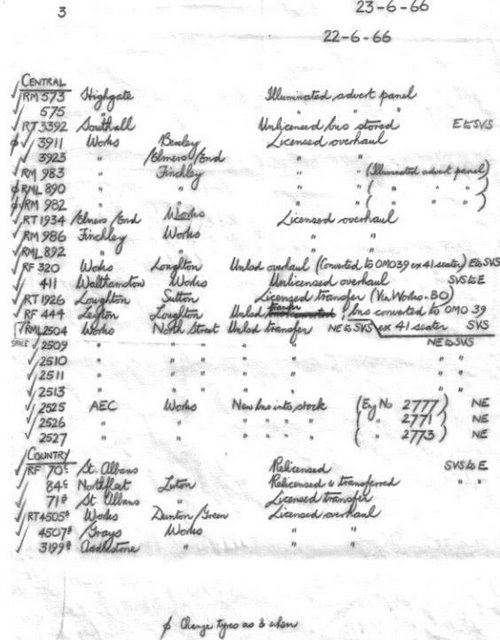 3 23-6-66
22-6-66
CENTRAL
✓ RM 573 Highgate Illuminated advert panel
✓ 575 " " " "
✓ RT 3392 Southall Unlicensed bus stored E to SVS
ɸ ✓ 3911 Works Bexley Licensed overhaul
✓ 3923 " Elmers End " "
✓ RM 983 " Finchley " " (Illuminated advert panel)
ɸ RML 890 " " " " ( " " " )
ɸ RM 982 " " " " ( " " " )
✓ RT 1934 Elmers End Works Licensed overhaul
✓ RM 986 Finchley Works " "
✓ RML 892 " " " "
✓ RF 320 Works Loughton Unlsd overhaul (Converted to OMO 39 ex 41 seater) E to SVS
✓ 411 Walthamstow Works Unlicensed overhaul SVS to E
✓ RT 1926 Loughton Sutton Licensed transfer (Via Works. BO)
✓ RF 444 Leyton Loughton Unlsd transfer, bus converted to OMO 39
✓ RML 2504 Works North Street Unlsd transfer NE to SVS ex 41 seater SVS
✓ 2509 " " " " NE to SVS
✓ 2510 " " " " " "
✓ 2511 " " " "
✓ 2513 " " " " " "
✓ 2525 AEC Works New bus into stock (Eng No 2777) NE
✓ 2526 " " " " " " ( " 2771) NE
✓ 2527 " " " " " " ( " 2773) NE
COUNTRY
✓ RF 70 St. Albans Relicensed SVS to E
✓ 84 Northfleet Luton Relicensed & transferred " "
✓ 71 St Albans " Licensed transfer
✓ RT 4505 Works Dunton Green Licensed overhaul
✓ 4507 Grays Works " "
✓ 3199 Addlestone " " "
ɸ Change tyres as & when